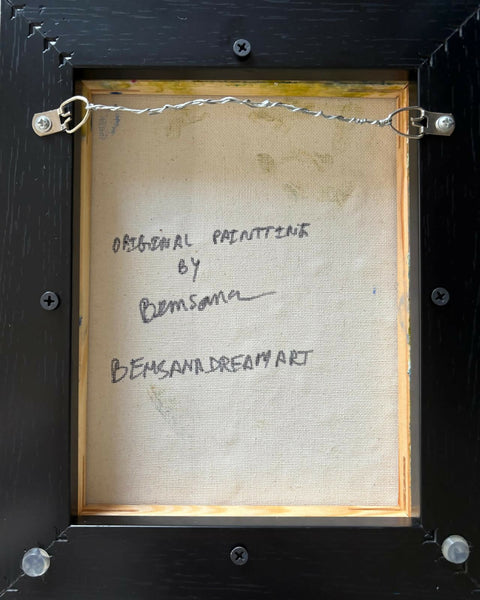 ORIGINAL PAINTTING
BY
Bemsana
BEMSANADREAMART